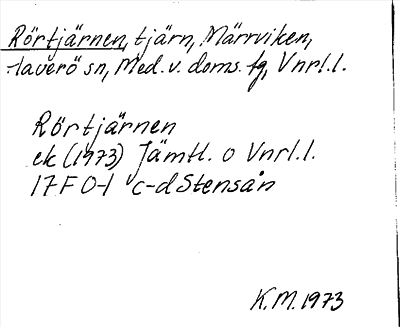 Rörtjärnen, tjärn, Märrviken,
Haverö sn, Med. v. doms. fg, Vnrl.l.
Rörtjärnen
ek (1973) Jämtl. o Vnrl.l.
17F 0-1 c-d Stensån
K.M. 1973